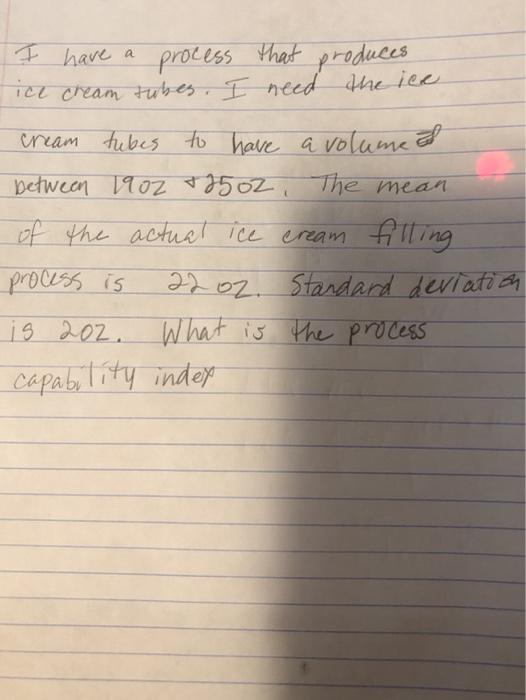 I have a process that produces
ice cream tubes. I need the ice
cream tubes to have a volume
between 19oz + 25oz. The mean
of the actual ice cream filling
process is 22 oz. Standard deviation
is 2oz. What is the process
capability index